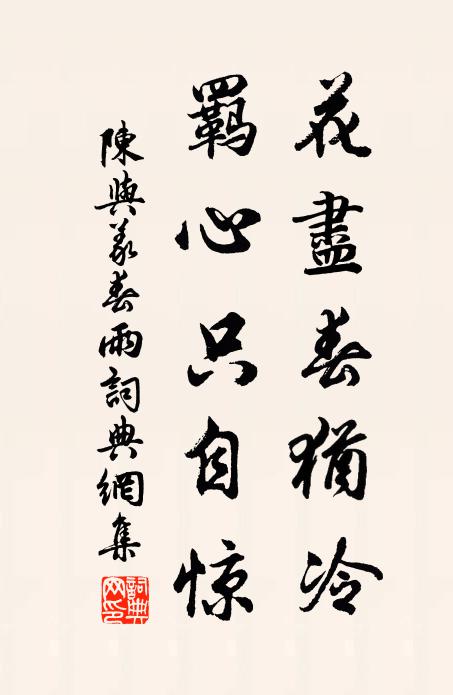 花盡春猶冷
羈心只自惊
陳與義春雨詞典網集
詞典網印